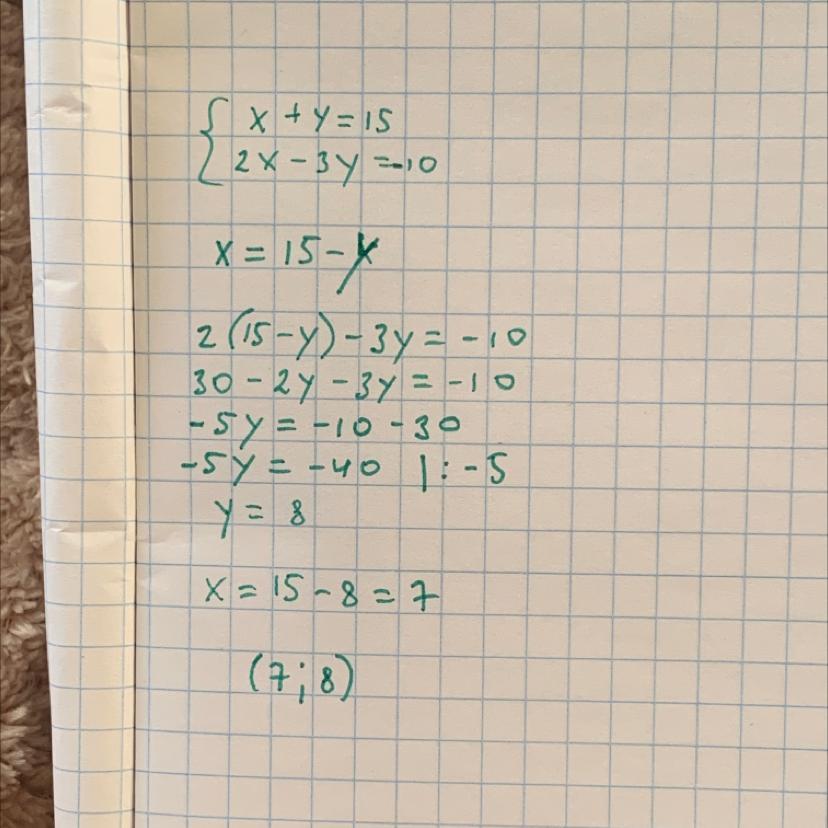 x + y = 15
2x - 3y = -10
x = 15 - y
2(15-y) - 3y = -10
30 - 2y - 3y = -10
-5y = -10 - 30
-5y = -40 | : -5
y = 8
x = 15 - 8 = 7
(7; 8)